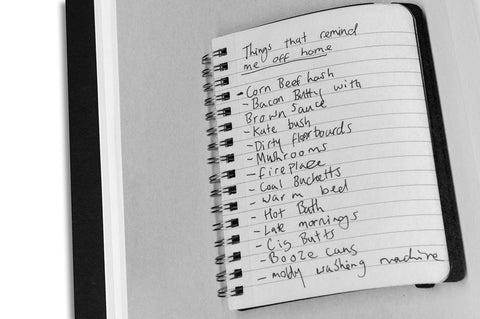 Things that remind
me off home
- Corn Beef hash
- Bacon Butty with
Brown sauce
- Kate bush
- Dirty floorboards
- Mushrooms
- fireplace
- Coal Bucketts
- warm bed
- Hot Bath
- Late mornings
- Cig Butts
- Booze cans
- moldy washing machine